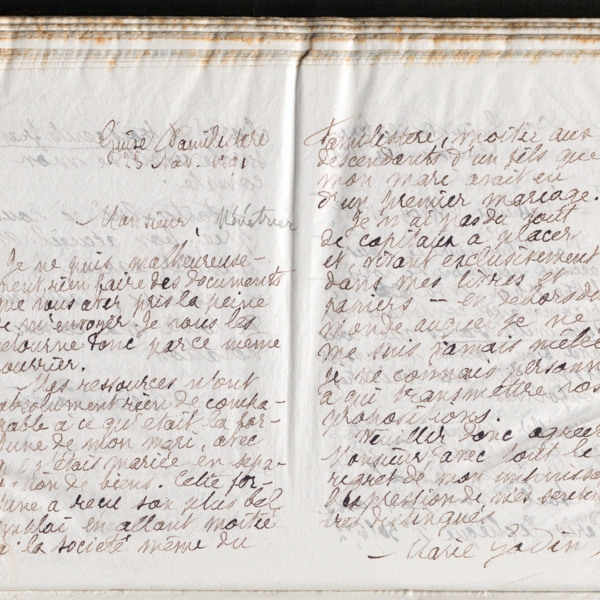 Guise Familistère
25 Nov. 1901
Monsieur Ménétrier
Je ne puis malheureuse-
ment rien faire des documents
que vous avez pris la peine
de m'envoyer. Je vous les
retourne donc par ce même
courrier.
Mes ressources n'ont
absolument rien de compa-
rable à ce qu'était la for-
tune de mon mari, avec
qui j'étais mariée en sépa-
ration de biens. Cette for-
tune a reçu son plus bel
emploi en allant moitié
à la société même du
Familistère, moitié aux
descendants d'un fils que
mon mari avait eu
d'un premier mariage.
Je n'ai pas du tout
de capitaux à placer
et vivant exclusivement
dans mes livres et
papiers — en dehors du
monde auquel je ne
me suis jamais mêlée
je ne connais personne
à qui transmettre vos
propositions.
Veuillez donc agréer
Monsieur avec tout le
regret de mon impuissance
l'expression de mes sentiments
très distingués
Marie Godin